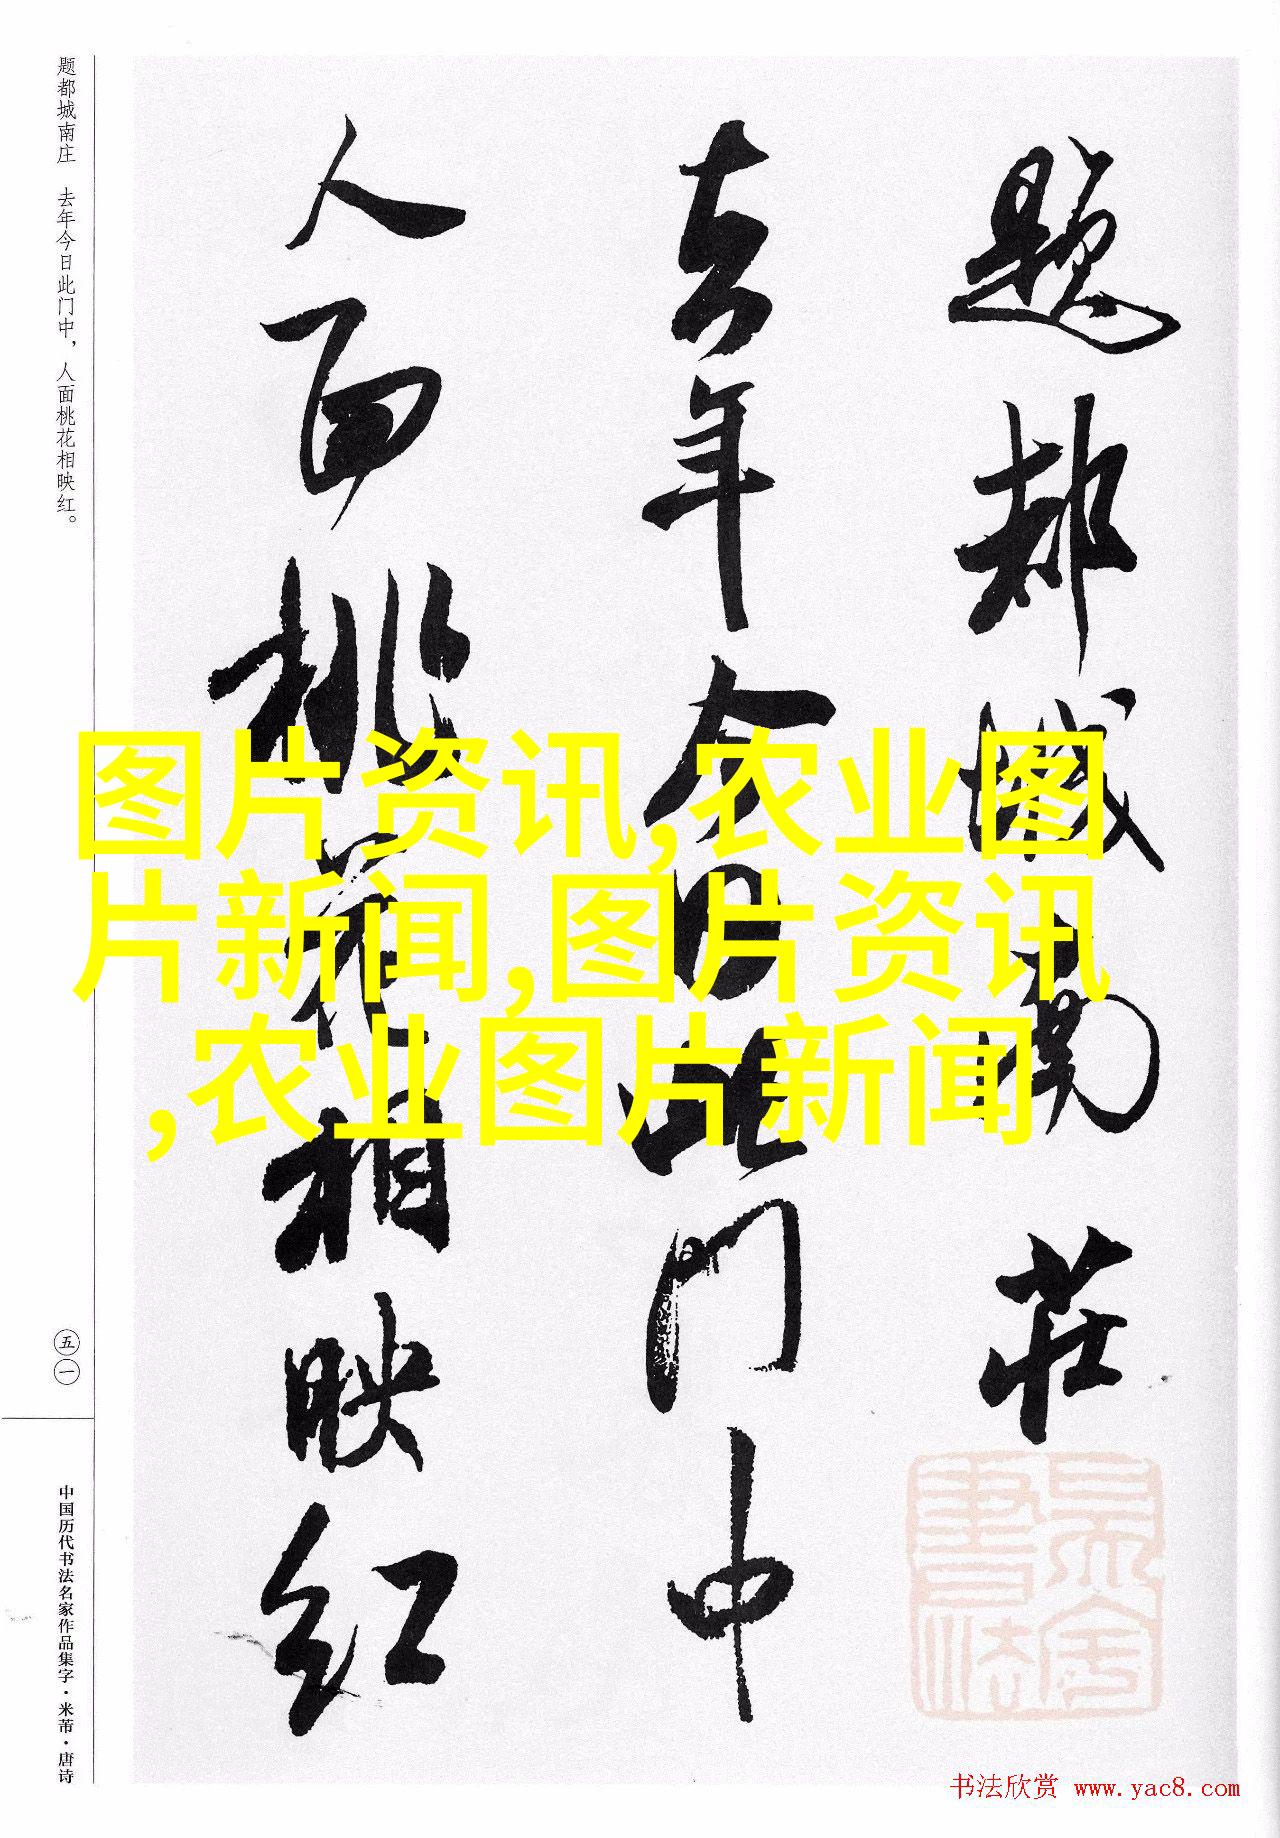 题都城南莊
去年今日此门中
人面桃花相映红
题都城南庄 去年今日此门中，人面桃花相映红。
五一
中国历代书法名家作品集字·米芾·唐诗
图片资讯,农业图
片新闻,图片资讯
,农业图片新闻
书法欣赏 www.yac8.com